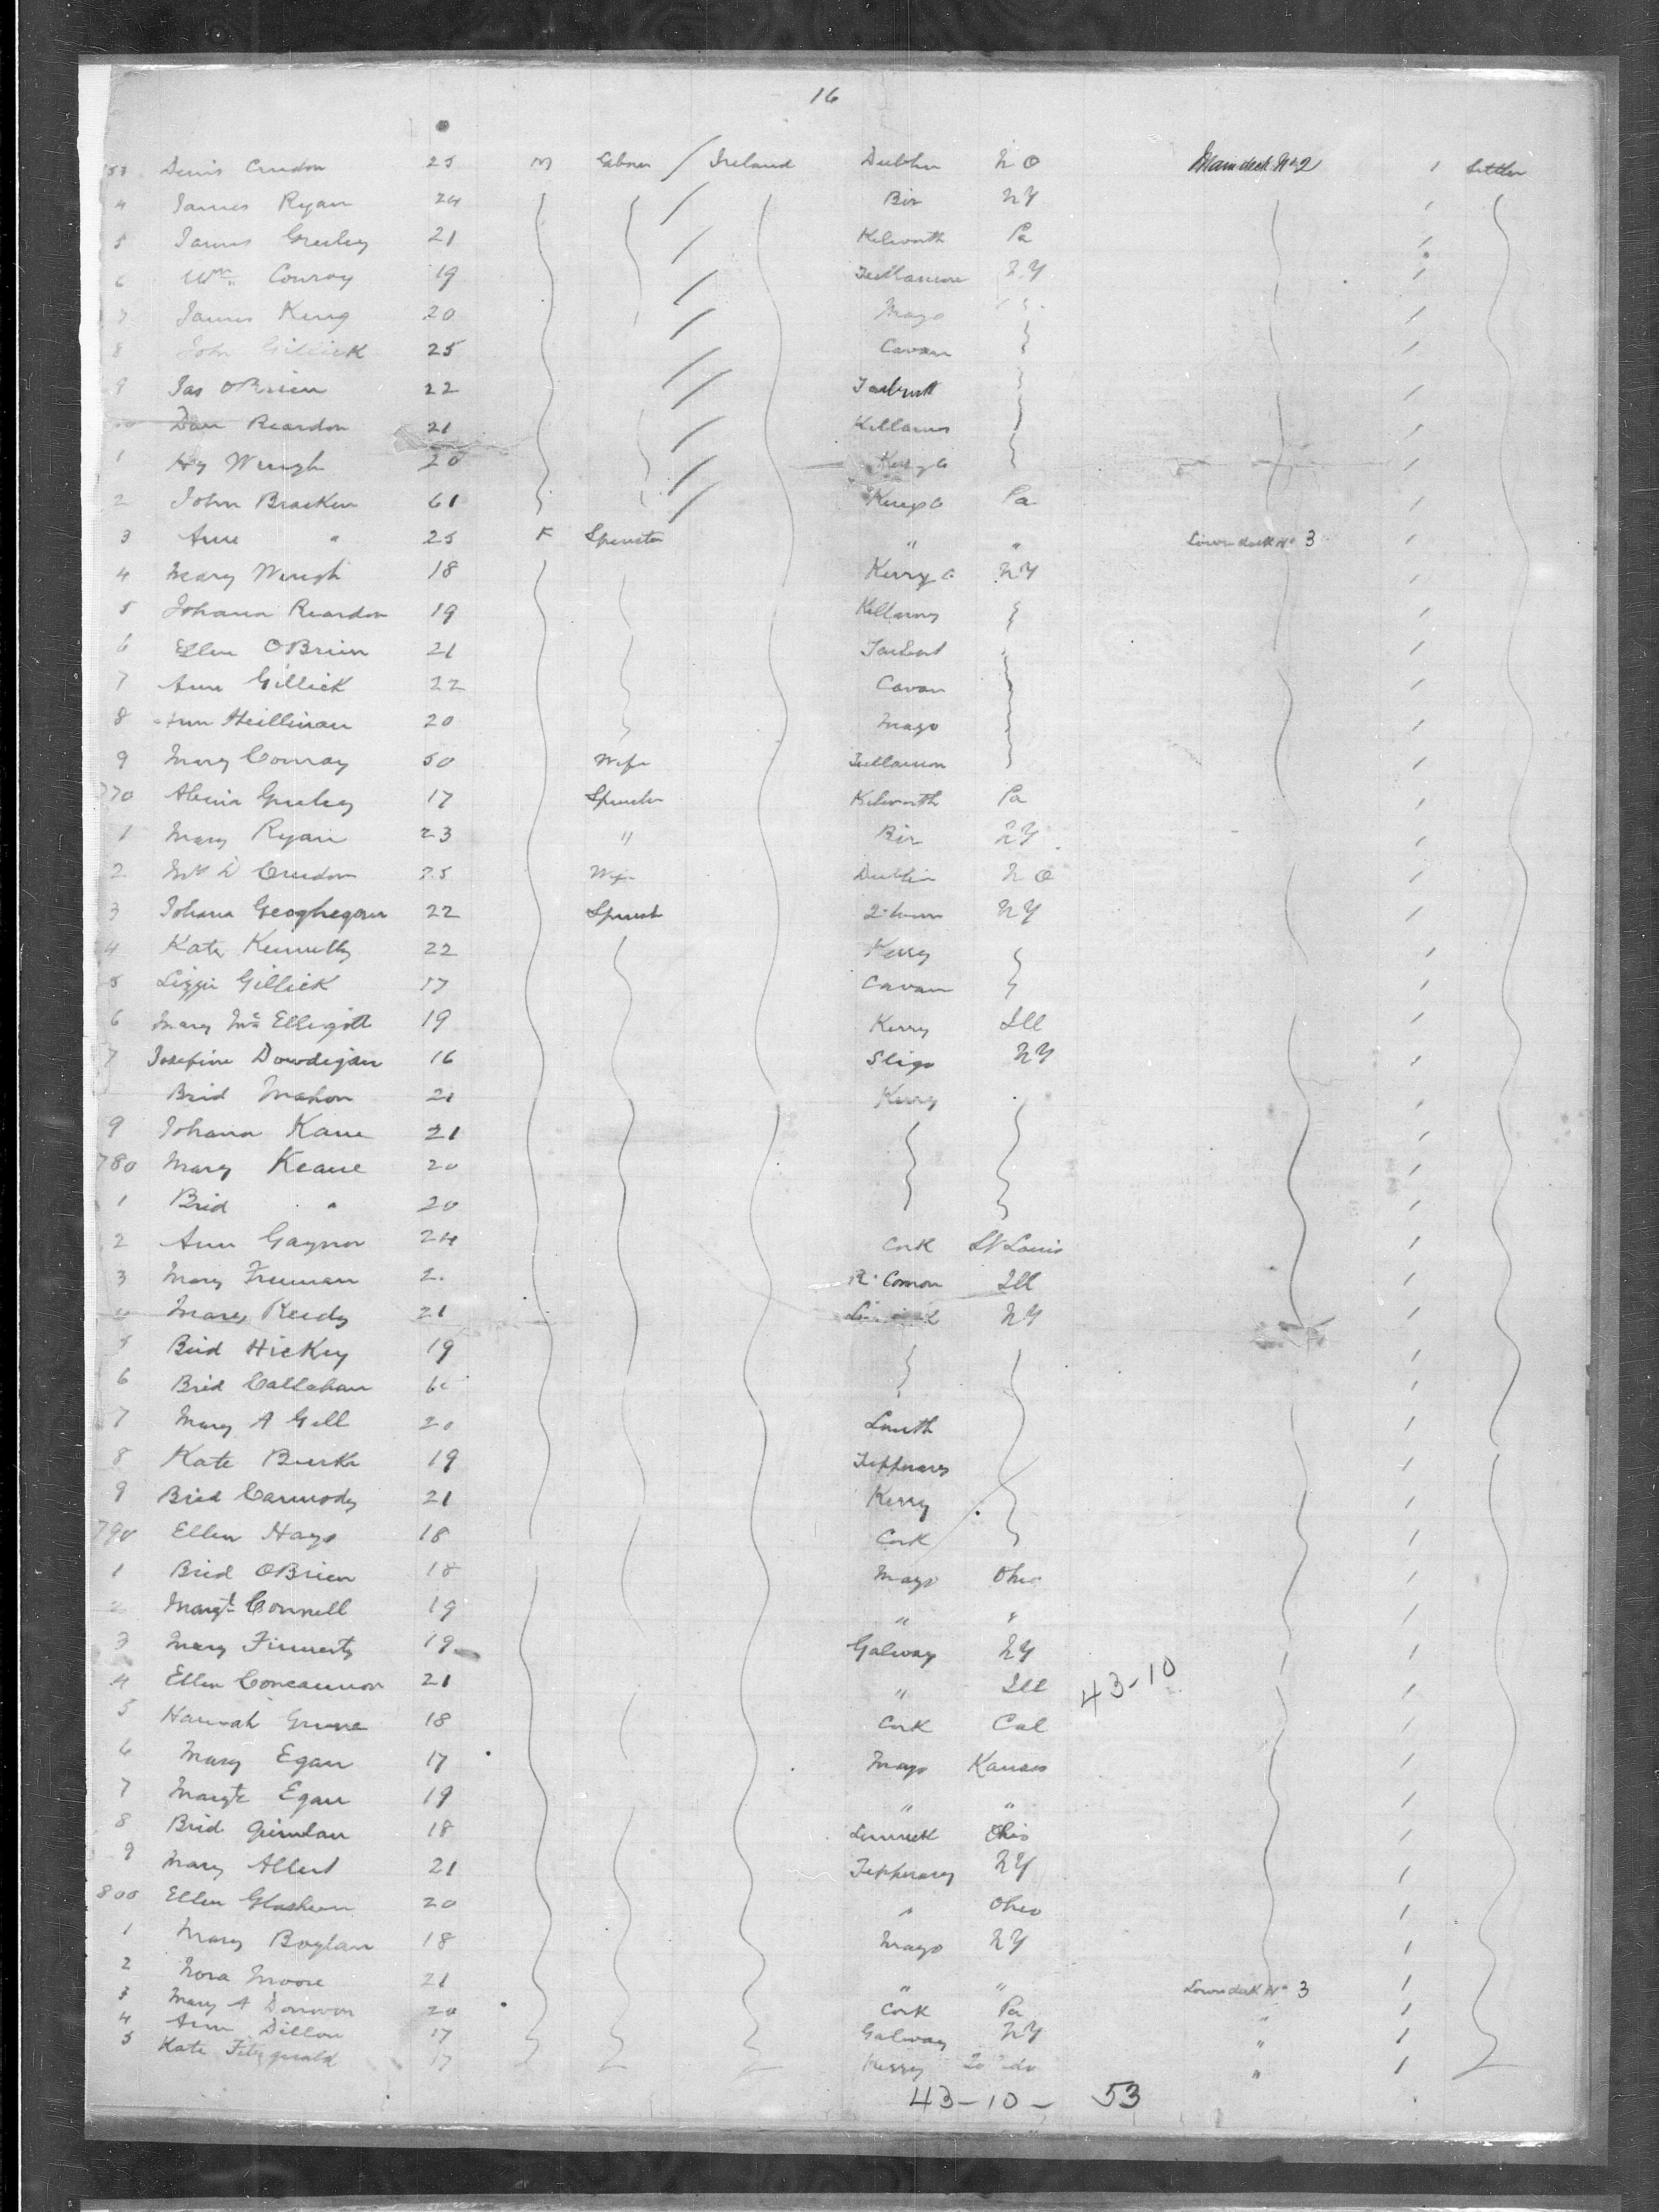 16
53 Denis Crudon 25 M Labour / Ireland Dublin N O Main deck No 2 1 Settler
4 James Ryan 24 / Bir NY 1
5 James Greeley 21 / Kilworth Pa 1
6 Wm Conroy 19 / Tullamore N.Y 1
7 James King 20 / Mayo 1
8 John Gillick 25 / Cavan 1
9 Jas OBrien 22 / Tarbert 1
Dan Reardon 21 / Killarney 1
1 Hy Wrugh 20 / Kerry Co 1
2 John Bracken 61 / Kings Co Pa 1
3 Ann " 25 F Spinster " " Lower deck No 3 1
4 Mary Wrugh 18 Kerry Co NY 1
5 Johana Reardon 19 Killarney 1
6 Ellen OBrien 21 Tarbert 1
7 Ann Gillick 22 Cavan 1
8 Ann Heillinan 20 Mayo 1
9 Mary Conray 50 Wife Tullamore 1
770 Greeley 17 Spinster Kilworth Pa 1
1 Mary Ryan 23 " Bir NY 1
2 Mrs D Crudon 25 Wife Dublin N O 1
3 Johana Geoghegan 22 Spinst Q. town NY 1
4 Kate Kennelly 22 Kerry 1
5 Lizzie Gillick 17 Cavan 1
6 Mary Mc Elligott 19 Kerry Ill 1
7 Josefine Dowdigan 16 Sligo NY 1
Brid Mahon 21 Kerry 1
9 Johana Kane 21 1
780 Mary Keane 20 1
1 Brid " 20 1
2 Ann Gaynor 24 Cork St Louis 1
3 Mary Freeman 2 R. Comon Ill 1
4 Mary Reidy 21 NY 1
5 Brid Hickey 19 1
6 Brid Callahan 1
7 Mary A Gill 20 Louth 1
8 Kate Burke 19 Tipperary 1
9 Brid Carmody 21 Kerry 1
790 Ellen Hays 18 Cork 1
1 Brid OBrien 18 Mayo Ohio 1
2 Margt Connell 19 " " 1
3 Mary Finnerty 19 Galway NY 1
4 Ellen Concannon 21 " Ill 43-10 1
5 Hannah 18 Cork Cal 1
6 Mary Egan 17 Mayo Kansas 1
7 Margt Egan 19 " " 1
8 Brid Quinlan 18 Limerick Ohio 1
9 Mary Allert 21 Tipperary NY 1
800 Ellen Glasheen 20 " Ohio 1
1 Mary Boylan 18 Mayo NY 1
2 Nora Moore 21 " " Lower deck No 3 1
3 Mary A Donovan 20 Cork Pa " 1
4 Ann Dillon 17 Galway NY " 1
5 Kate Fitzgerald 17 Kerry " 1
43-10- 53